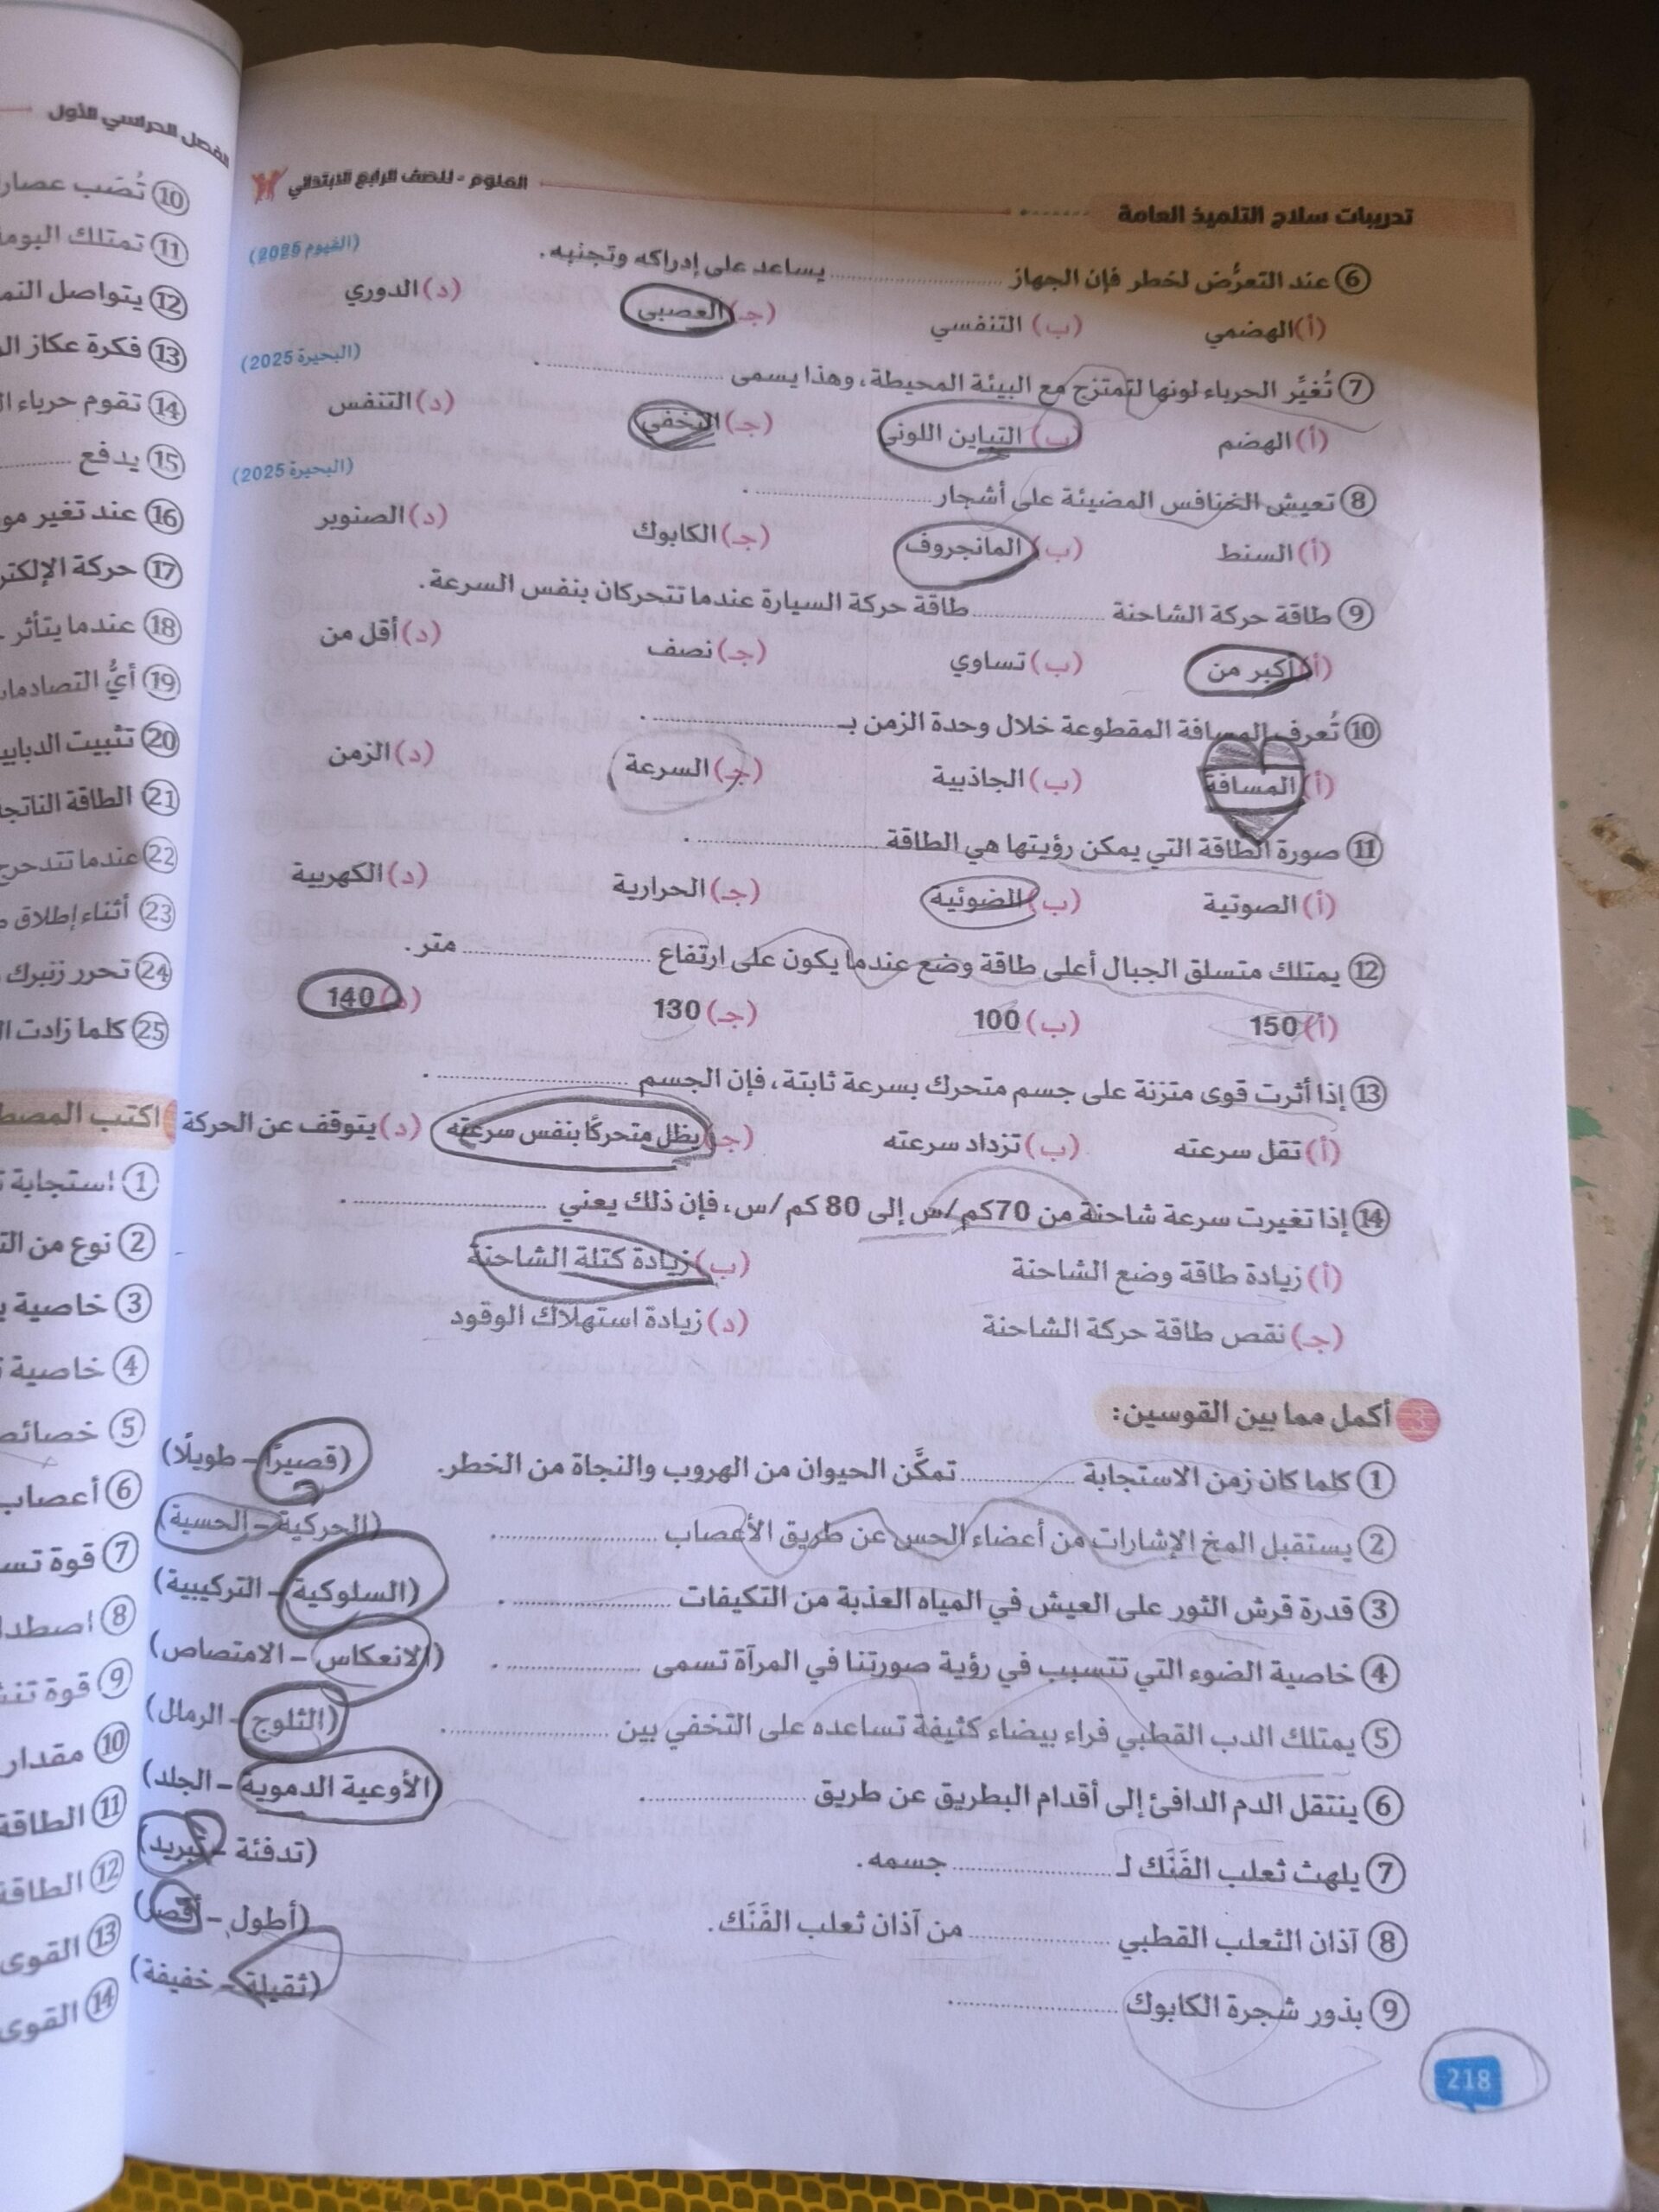 تدريبات سلاح التلميذ العامة
العلوم - للصف الرابع الابتدائي
6 عند التعرُّض لخطر فإن الجهاز .................... يساعد على إدراكه وتجنبه. (الفيوم 2025)
(أ) الهضمي (ب) التنفسي (جـ) العصبي (د) الدوري
7 تُغيِّر الحرباء لونها لتمتزج مع البيئة المحيطة، وهذا يسمى .................... . (البحيرة 2025)
(أ) الهضم (ب) التباين اللوني (جـ) التخفي (د) التنفس
8 تعيش الخنافس المضيئة على أشجار .................... . (البحيرة 2025)
(أ) السنط (ب) المانجروف (جـ) الكابوك (د) الصنوبر
9 طاقة حركة الشاحنة .................... طاقة حركة السيارة عندما تتحركان بنفس السرعة.
(أ) أكبر من (ب) تساوي (جـ) نصف (د) أقل من
10 تُعرف المسافة المقطوعة خلال وحدة الزمن بـ .................... .
(أ) المسافة (ب) الجاذبية (جـ) السرعة (د) الزمن
11 صورة الطاقة التي يمكن رؤيتها هي الطاقة .................... .
(أ) الصوتية (ب) الضوئية (جـ) الحرارية (د) الكهربية
12 يمتلك متسلق الجبال أعلى طاقة وضع عندما يكون على ارتفاع .................... متر.
(أ) 150 (ب) 100 (جـ) 130 (د) 140
13 إذا أثرت قوى متزنة على جسم متحرك بسرعة ثابتة، فإن الجسم .................... .
(أ) تقل سرعته (ب) تزداد سرعته (جـ) يظل متحركًا بنفس سرعته (د) يتوقف عن الحركة
14 إذا تغيرت سرعة شاحنة من 70 كم/س إلى 80 كم/س، فإن ذلك يعني .................... .
(أ) زيادة طاقة وضع الشاحنة (ب) زيادة كتلة الشاحنة
(جـ) نقص طاقة حركة الشاحنة (د) زيادة استهلاك الوقود
3 أكمل مما بين القوسين:
1 كلما كان زمن الاستجابة .................... تمكَّن الحيوان من الهروب والنجاة من الخطر. (قصيرًا - طويلًا)
2 يستقبل المخ الإشارات من أعضاء الحس عن طريق الأعصاب .................... (الحركية - الحسية)
3 قدرة قرش الثور على العيش في المياه العذبة من التكيفات .................... . (السلوكية - التركيبية)
4 خاصية الضوء التي تتسبب في رؤية صورتنا في المرآة تسمى .................... . (الانعكاس - الامتصاص)
5 يمتلك الدب القطبي فراء بيضاء كثيفة تساعده على التخفي بين .................... . (الثلوج - الرمال)
6 ينتقل الدم الدافئ إلى أقدام البطريق عن طريق .................... . (الأوعية الدموية - الجلد)
7 يلهث ثعلب الفَنَك لـ .................... جسمه. (تدفئة - تبريد)
8 آذان الثعلب القطبي .................... من آذان ثعلب الفَنَك. (أطول - أقصر)
9 بذور شجرة الكابوك .................... . (ثقيلة - خفيفة)
218
الفصل الدراسي الأول
10 تُصَب
11 تمتلك
12 يتواصل
13 فكرة عكاز
14 تقوم حرباء
15 يدفع ..........
16 عند تغير
17 حركة
18 عندما يتأثر
19 أيُّ
20 تثبيت
21 الطاقة
22 عندما تتدحرج
23 أثناء إطلاق
24 تحرر زنبرك
25 كلما زادت
اكتب
1 استجابة
2 نوع من
3 خاصية
4 خاصية
5
6 أعصاب
7 قوة
8
9 قوة
10 مقدار
11 الطاقة
12 الطاقة
13 القوى
14 القوى